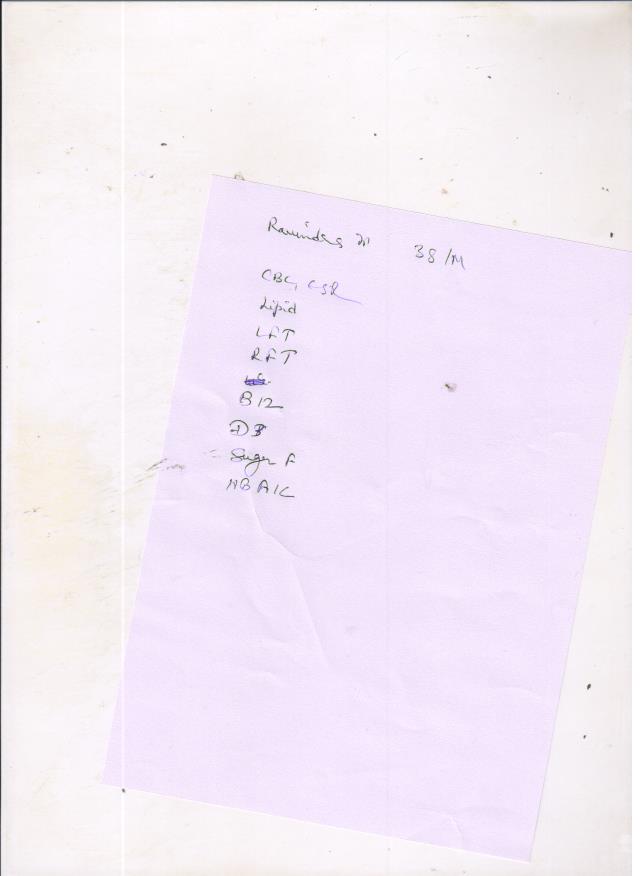 Ravinder 38/M
CBC, ESR
Lipid
LFT
RFT
B12
D3
Sugar F
HBA1C